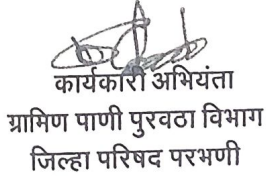 कार्यकारी अभियंता
ग्रामिण पाणी पुरवठा विभाग
जिल्हा परिषद परभणी